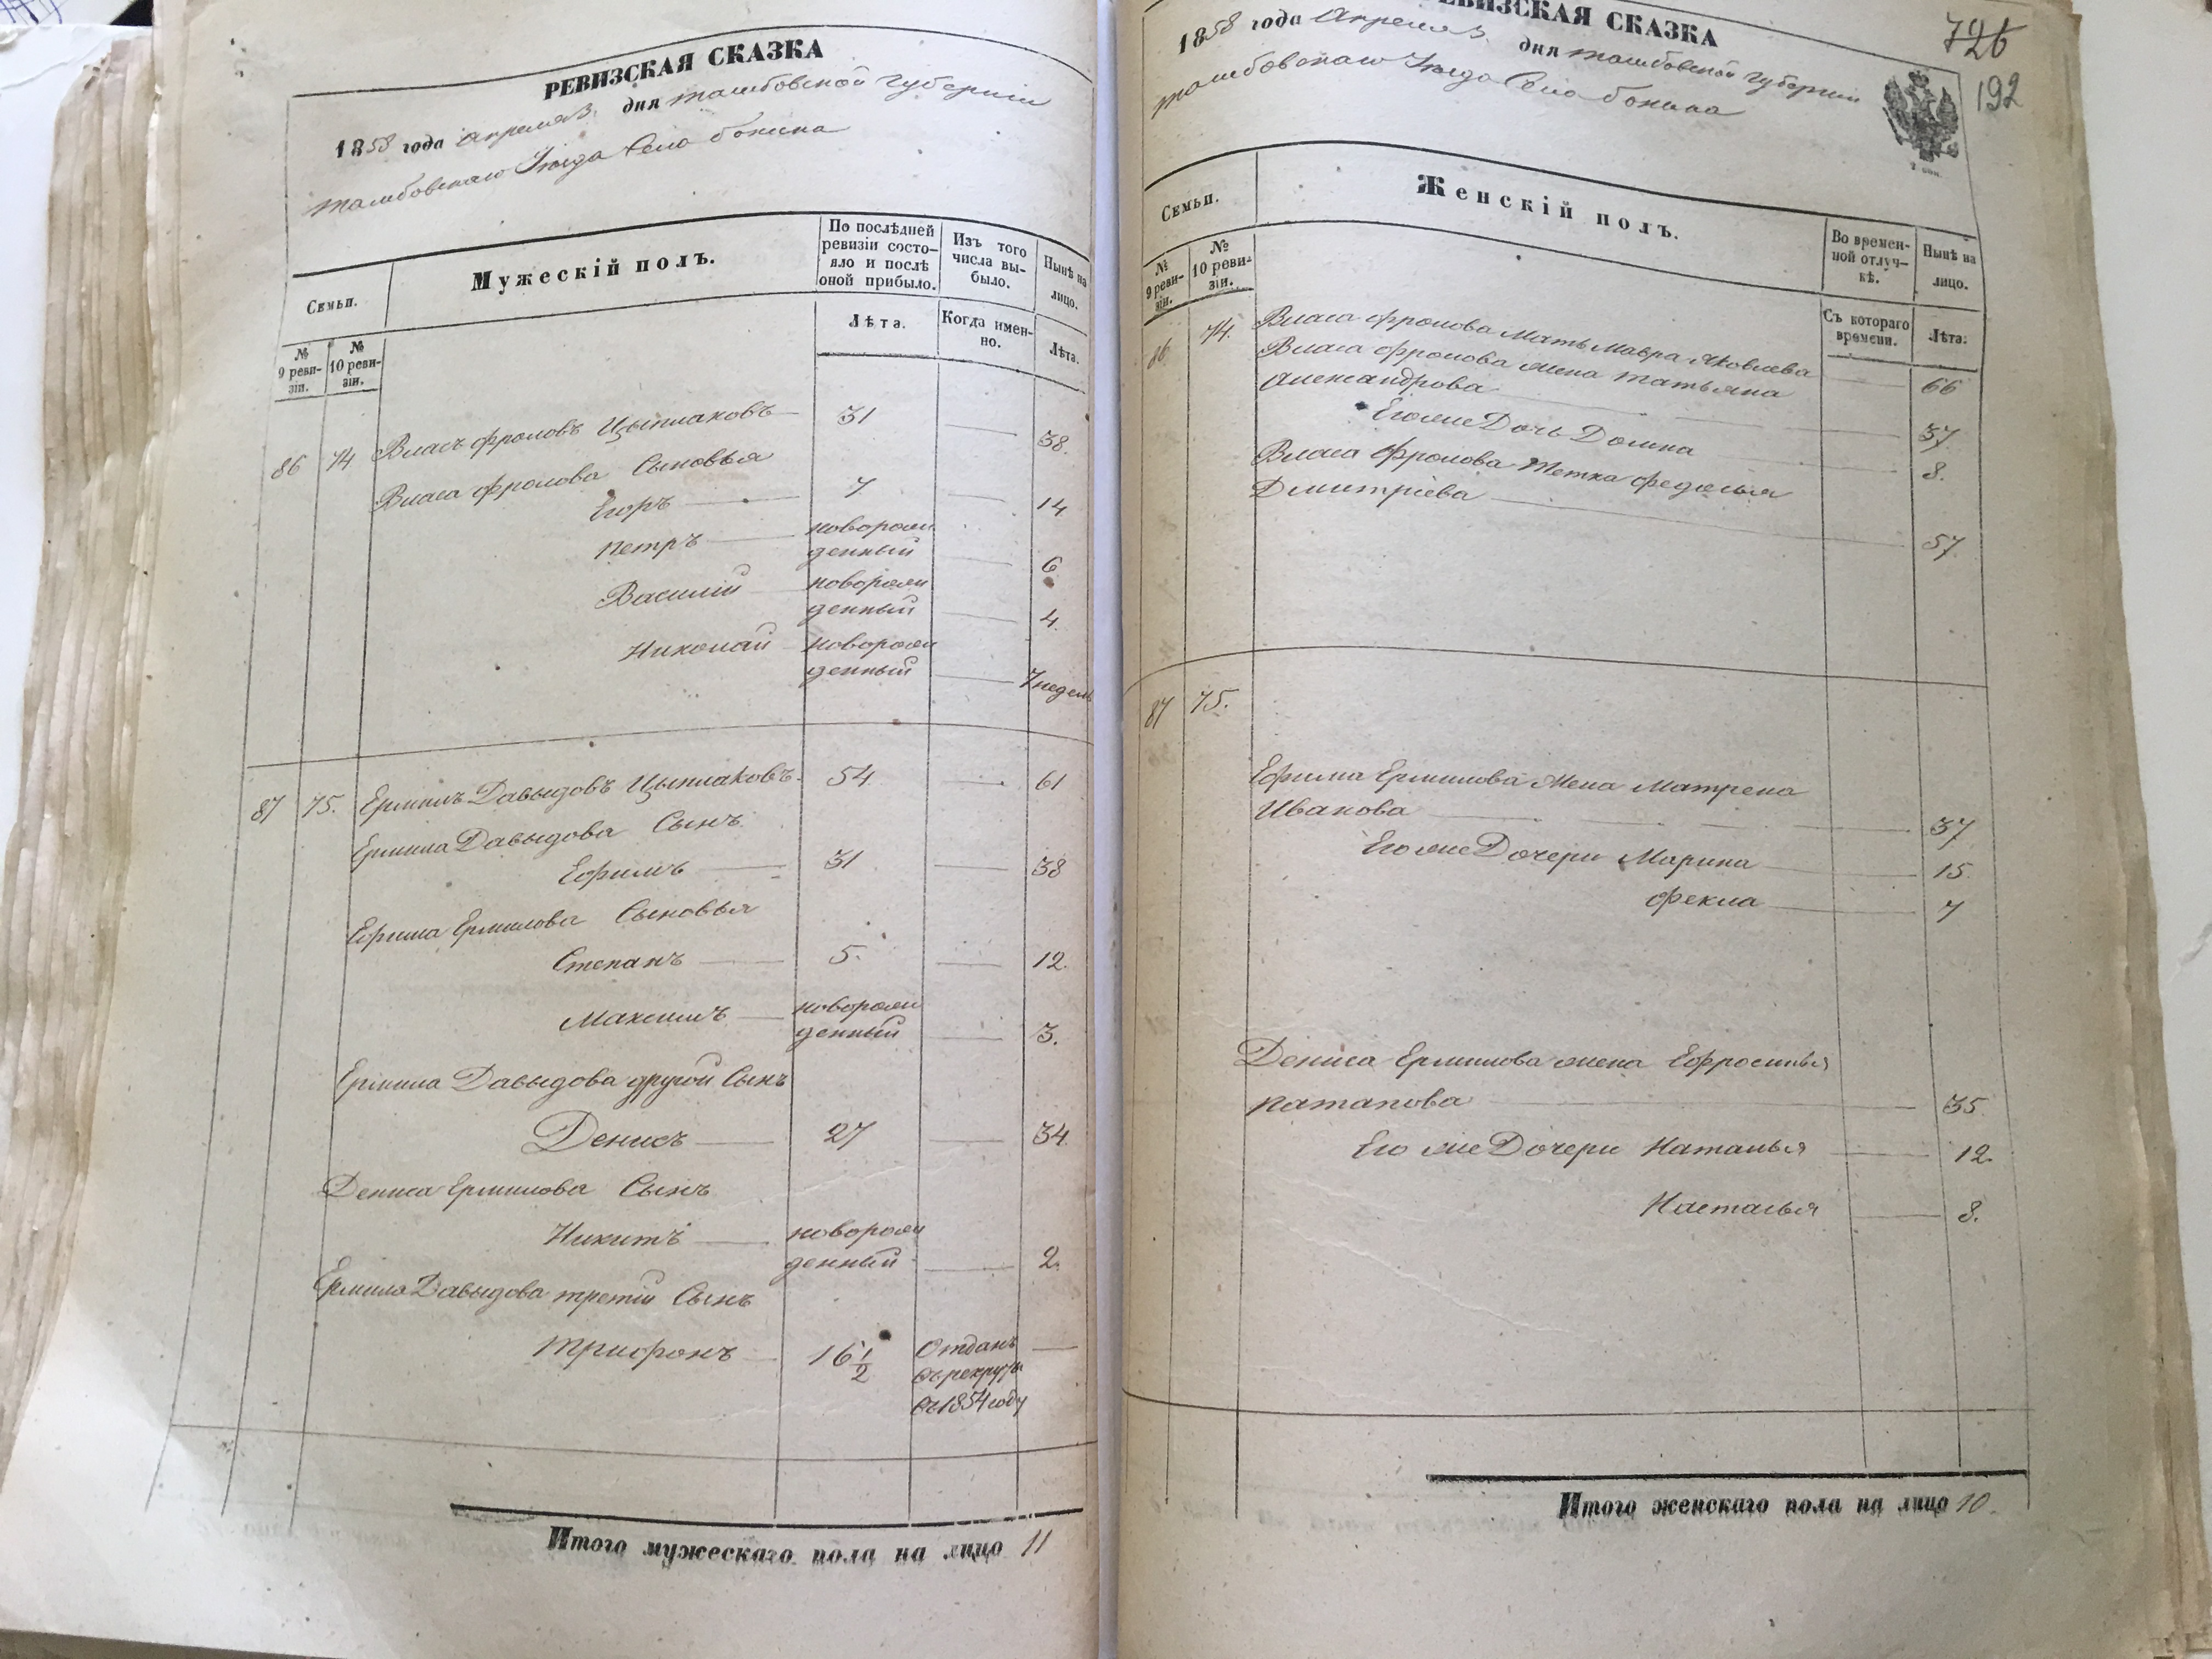 РЕВИЗСКАЯ СКАЗКА
1858 года апреля 3. дня тамбовской губернiи
тамбовскаго Уѣзда Село бокина
Семьи.
Мужескiй полъ.
По послѣдней ревизiи состо-
яло и послѣ
оной прибыло.
Изъ того
числа вы-
было.
Нынѣ на
лицо.
№
9 реви-
зiи.
№
10 реви-
зiи.
Лѣта.
Когда имен-
но.
Лѣта.
86 74 Власъ фроловъ Цыплаковъ 31 38.
Власа фролова Сыновья
Егоръ 7 14
петръ новорож
денный 6
Василiй новорож
денный 4.
Николай новорож
денный 7 недель
87 75. Ермилъ Давыдовъ Цыплаковъ. 54 61
Ермила Давыдова Сынъ
Ефимъ 31 38
Ефима Ермилова Сыновья
Степанъ 5. 12.
Максимъ новорож
денный 3.
Ермила Давыдова другой Сынъ
Денисъ 27 34.
Дениса Ермилова Сынъ
Никитъ новорож
денный 2.
Ермила Давыдова третiй Сынъ
трифонъ 16 1/2 Отданъ
въ рекруты
въ 1854 году
Итого мужескаго пола на лицо 11
РЕВИЗСКАЯ СКАЗКА
726
192
1858 года апреля 3. дня тамбовской губернiи
тамбовскаго Уѣзда Село бокина
Семьи.
Женскiй полъ.
Во времен-
ной отлуч-
кѣ.
Нынѣ на
лицо.
№
9 реви-
зiи.
№
10 реви-
зiи.
Съ котораго
времени.
Лѣта.
86 74. Власа фролова Мать Мавра Яковлева 66
Власа фролова жена татьяна
Александрова 37.
Его же Дочь Домна 8.
Власа Фролова тетка федосья
Дмитрiева 57.
87 75.
Ефима Ермилова Жена Матрена
Иванова 37
Его же Дочери Марина 15.
фекла 7
Дениса Ермилова жена Ефросинья
патапова 35.
Его же Дочери Наталья 12.
Настасья 8.
Итого женскаго пола на лицо 10.